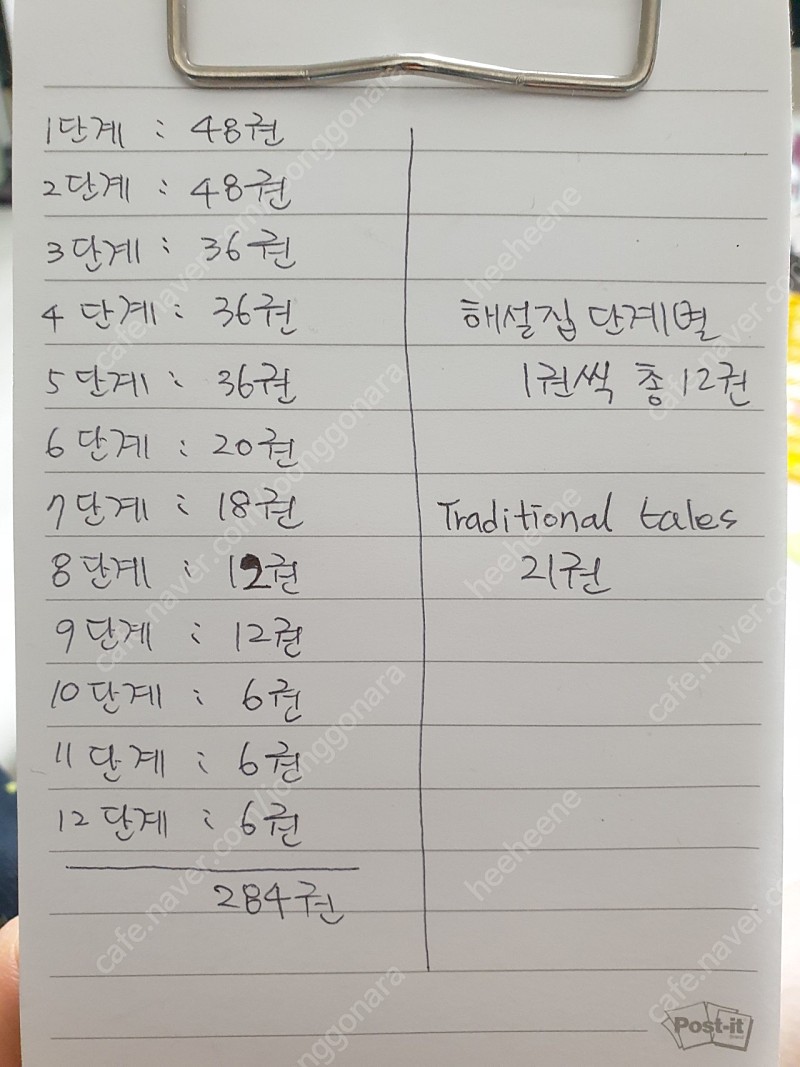 1단계 : 48권
2단계 : 48권
3단계 : 36권
4단계 : 36권
5단계 : 36권
6단계 : 20권
7단계 : 18권
8단계 : 12권
9단계 : 12권
10단계 : 6권
11단계 : 6권
12단계 : 6권
284권
해설집 단계별
1권씩 총 12권
Traditional tales
21권
Post-it
cafe.naver.com/joonggonara
heeheene